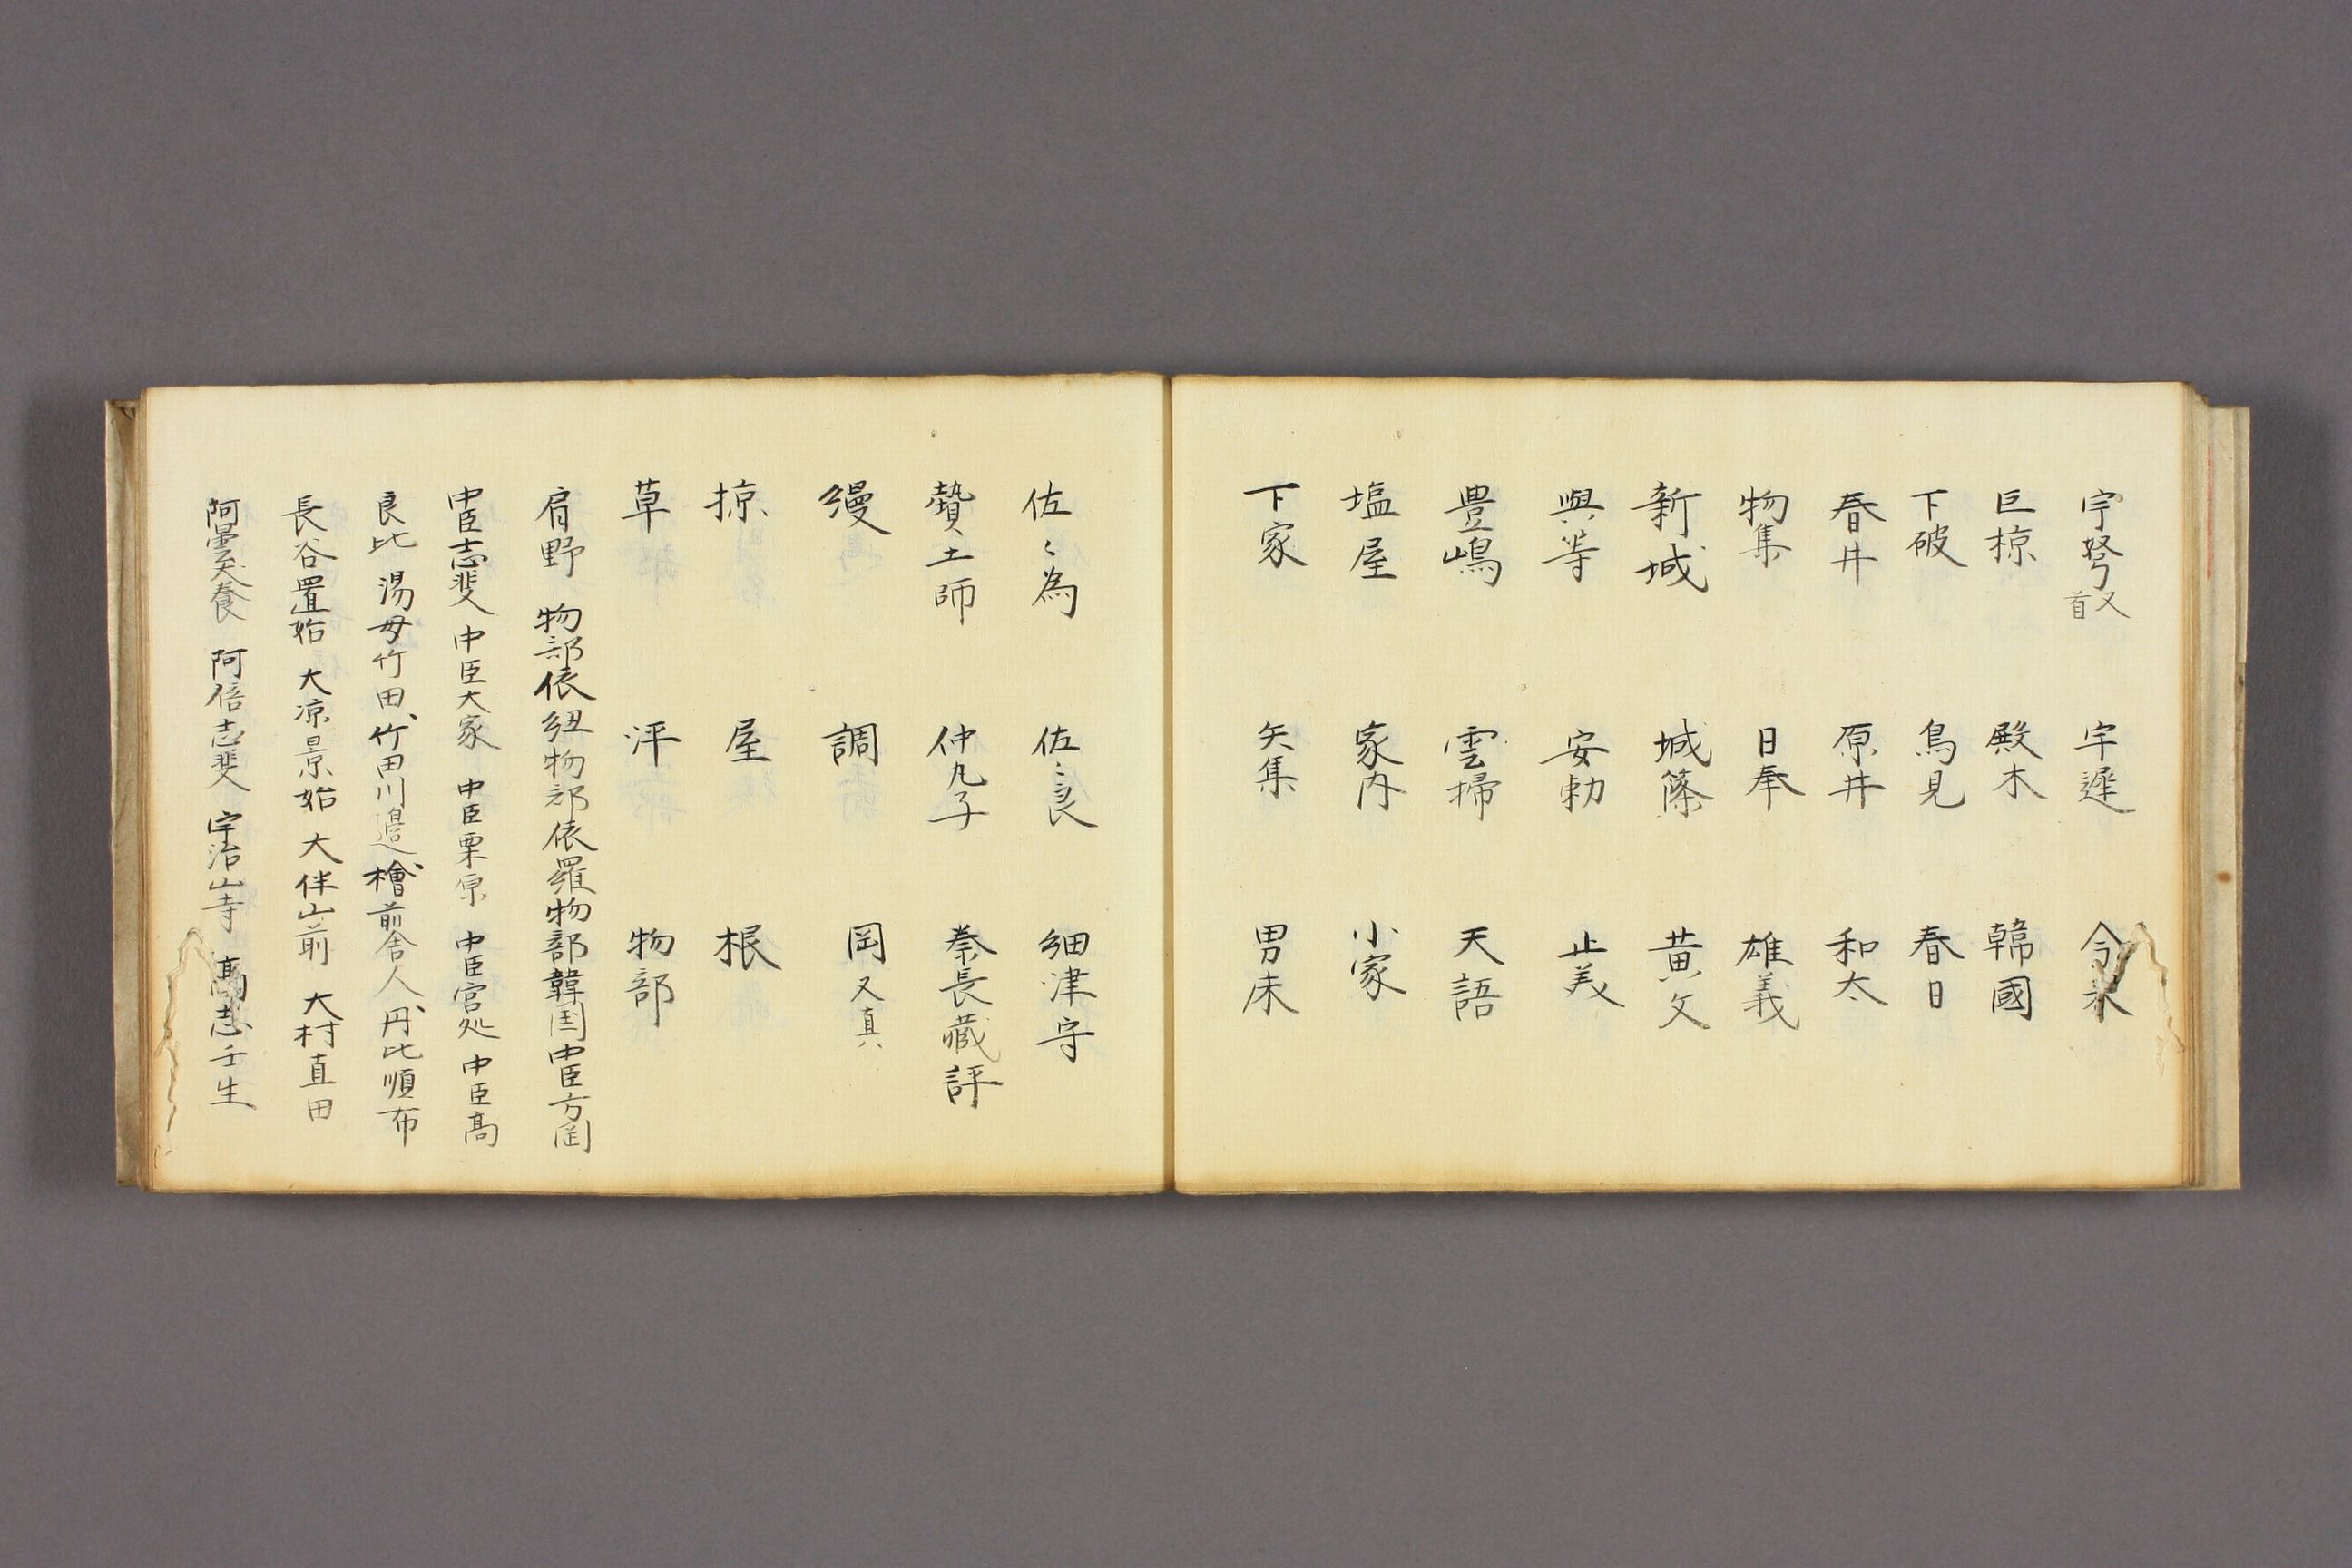 宇努又首 宇遅 今木
巨椋 殿木 韓國
下破 鳥見 春日
春井 原井 和太
物集 日奉 雄義
新城 城篠 黄文
與等 安勅 止美
豊嶋 雲掃 天語
塩屋 家内 小家
下家 矢集 男未
佐〻為 佐〻良 細津守
贄土師 仲丸子 秦長蔵評
縵 調 岡又真
掠 屋 根
草 泙 物部
肩野 物部依 物部依羅物部韓国中臣方岡
中臣志斐 中臣大家 中臣栗原 中臣宮処 中臣髙
良比 湯母竹田、竹田川邉、檜前舎人、丹比順布
長谷置始 大凉景始 大伴山前 大村直田
阿曇犬養 阿倍志斐 宇治山寺 髙志壬生